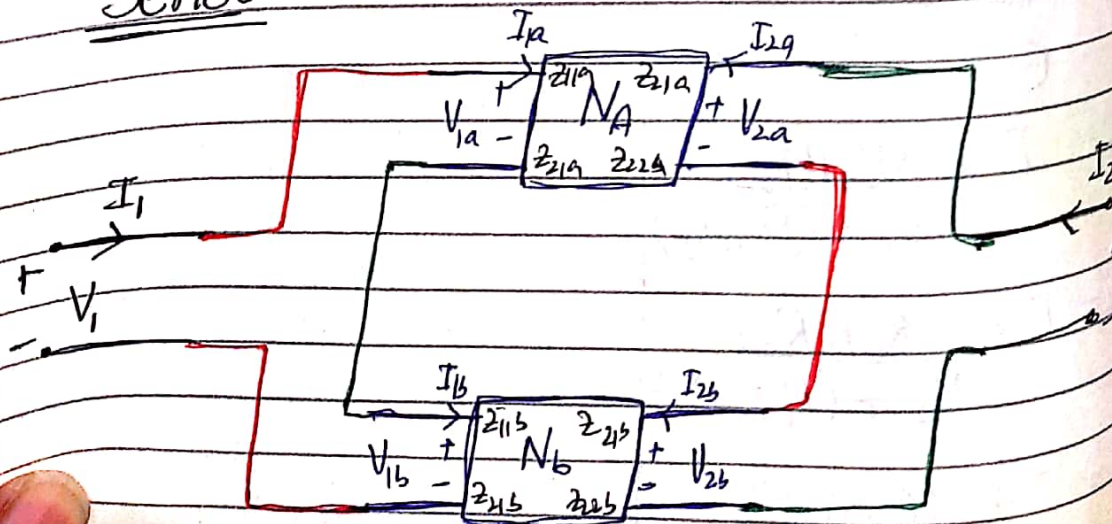 I1a I2a
Z11a Z21a
+ NA +
V1a V2a
- -
Z21a Z22a
I1 I2
+
V1
-
I1b I2b
Z11b Z21b
+ Nb +
V1b V2b
- -
Z21b Z22b